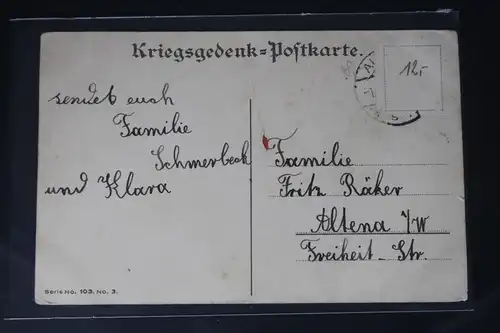 Kriegsgedenk=Postkarte.
12,-
sendet euch
Familie
Schmerbeck
und Klara
Familie
Fritz Räker
Altena i/W
Freiheit-Str.
Serie No. 103. No. 3.